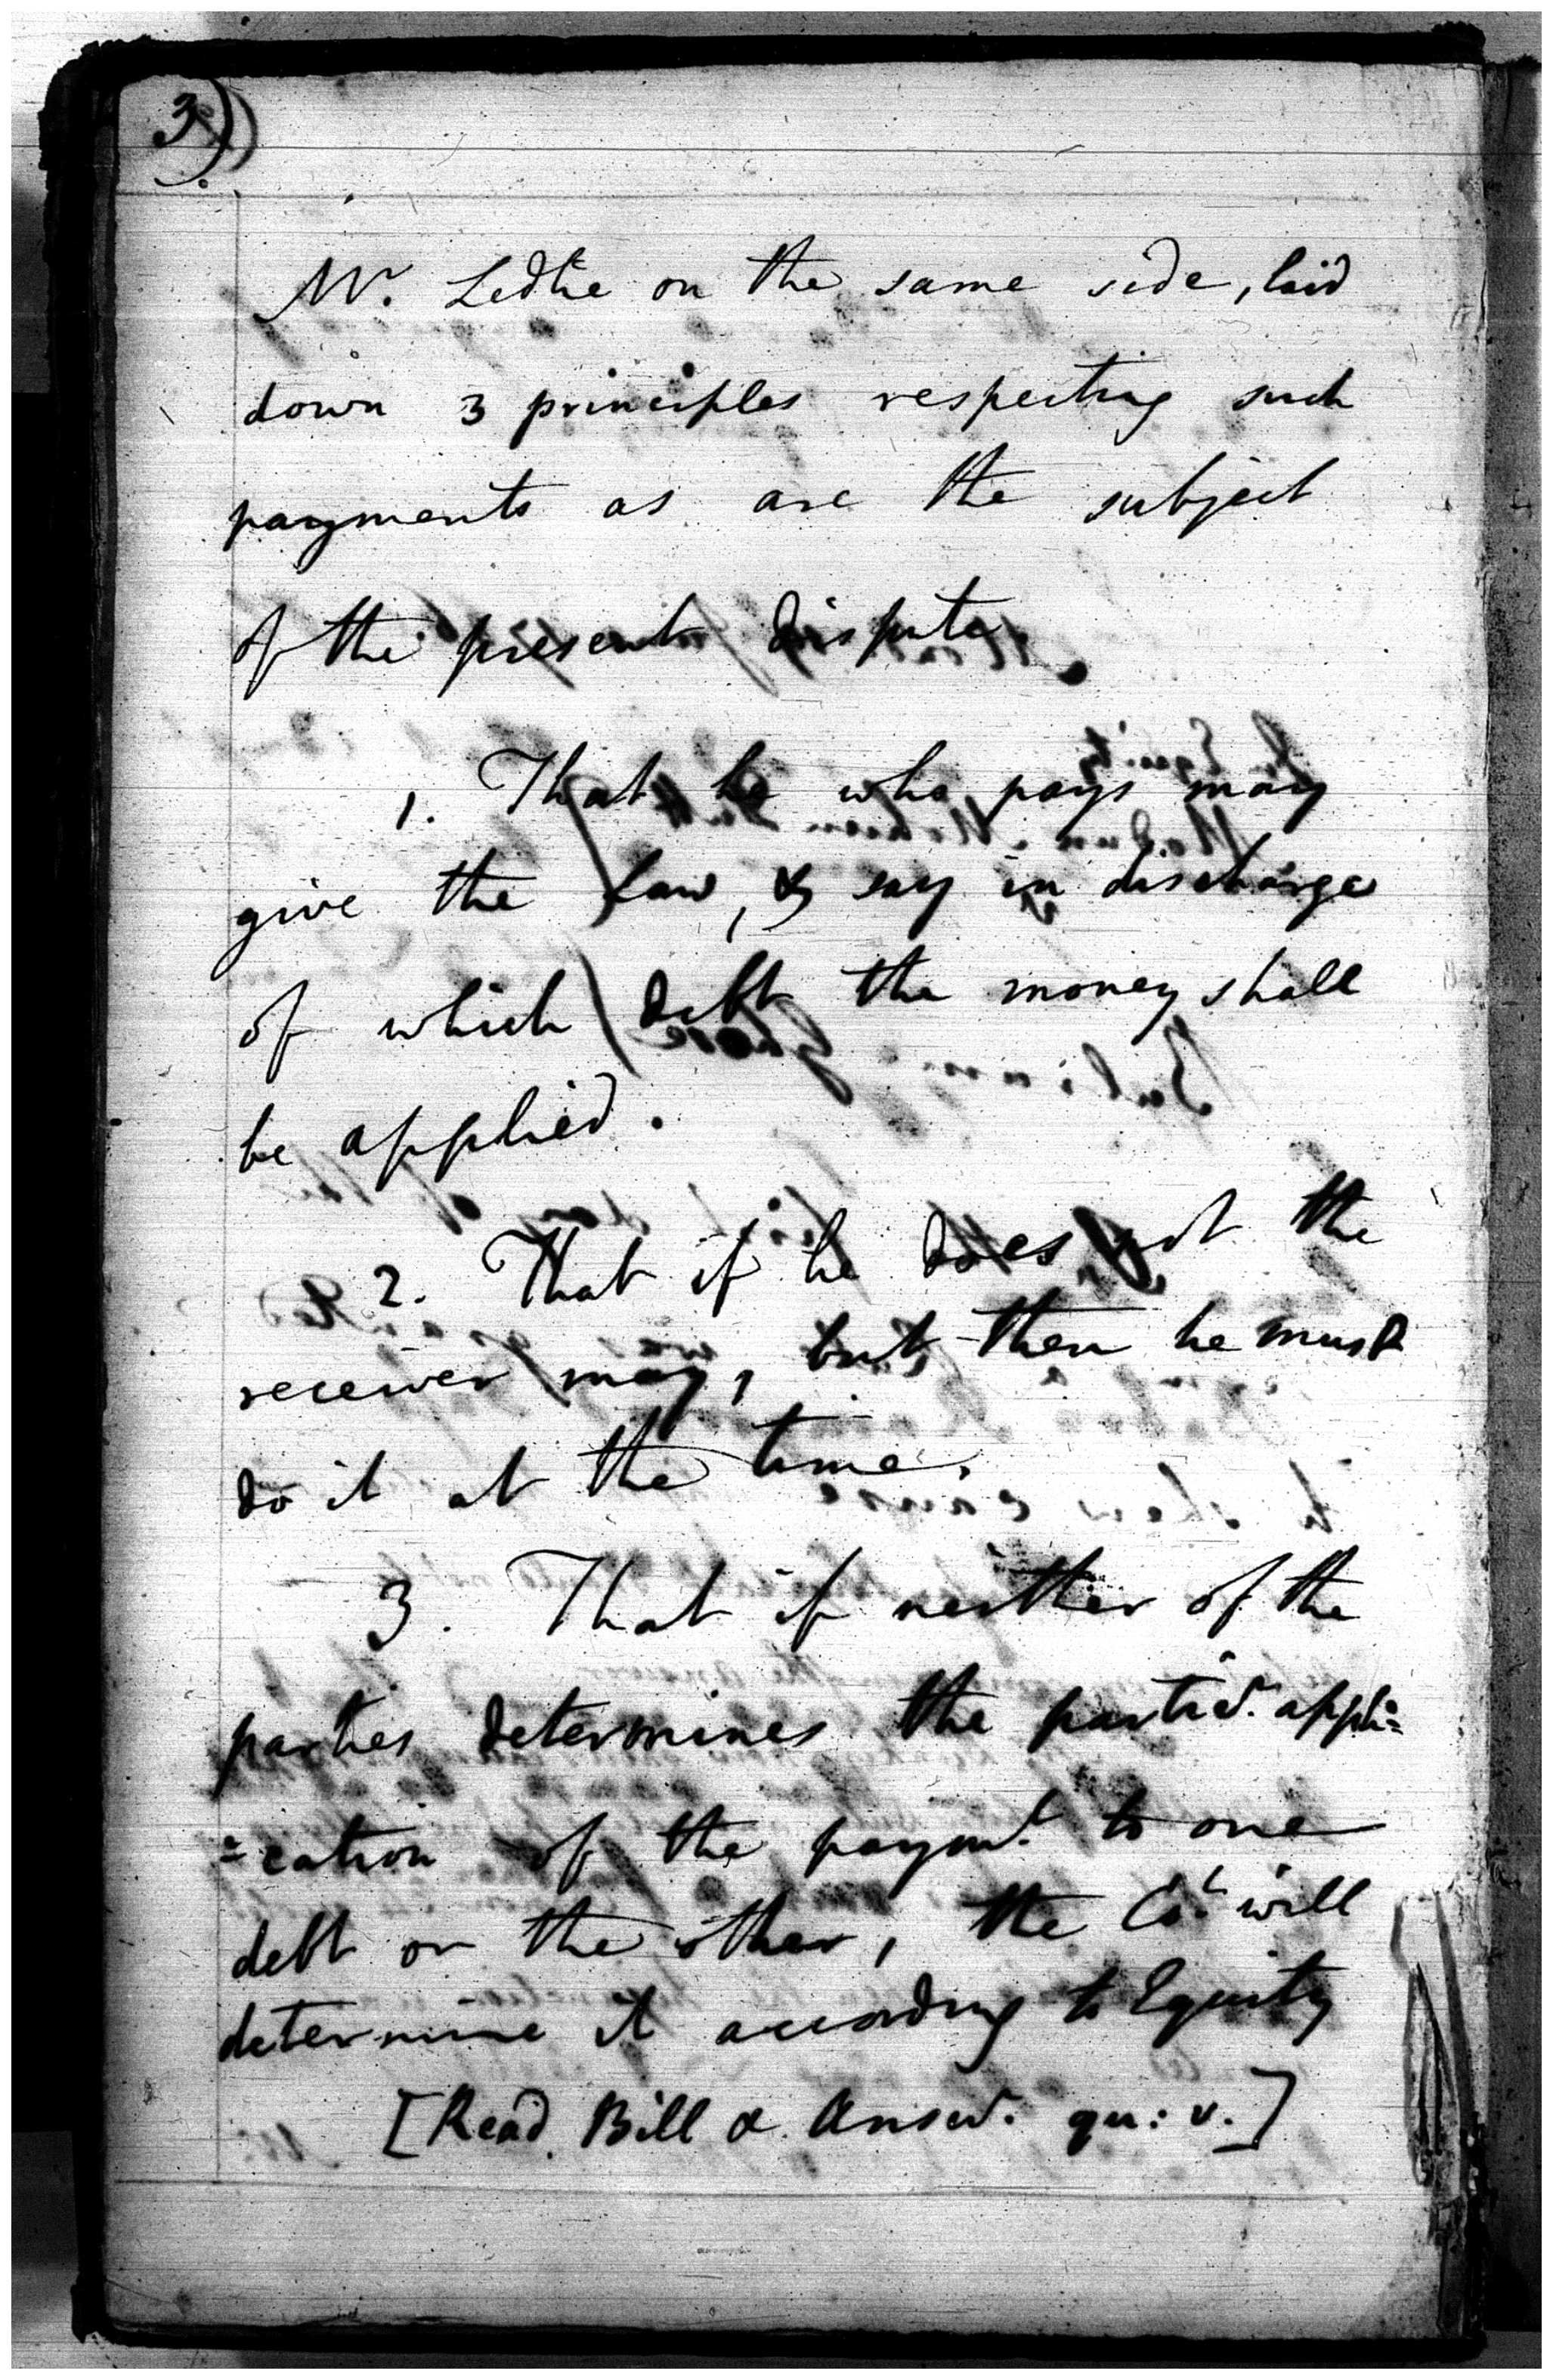 3)
Mr. Ledlie on the same side, laid
down 3 principles respecting such
payments as are the subject
of the present dispute.
1. That he who pays may
give the Law, & say in discharge
of which debt the money shall
be applied.
2. That if he does not the
receiver may, but then he must
do it at the time.
3. That if neither of the
parties determines the partic.r appli=
=cation of the paym.t to one
debt or the other, the Co.t will
determine it according to Equity
[Read Bill & Answ.r qu: v.]